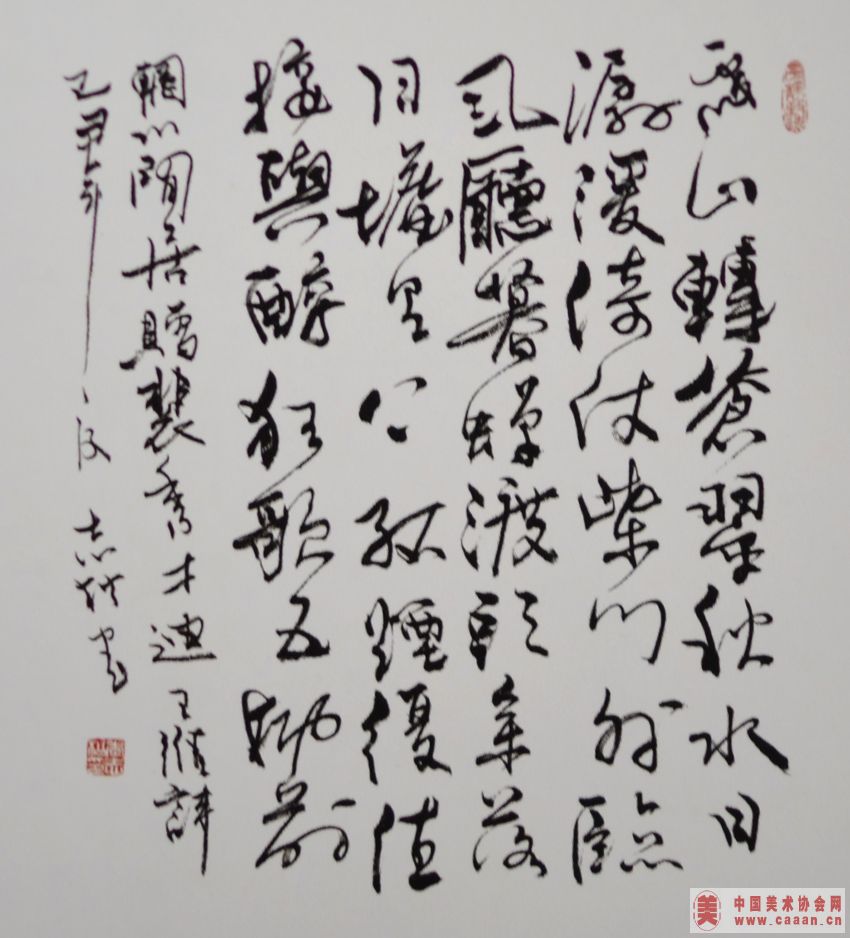 寒山轉蒼翠秋水日
潺湲倚仗柴門外臨
風廳暮蟬渡頭余落
日墟里上孤煙復值
接輿醉狂歌五柳前
輞川閒居贈裴秀才迪王維詩
年夏志書
美 中国美术协会网
www.caaan.cn